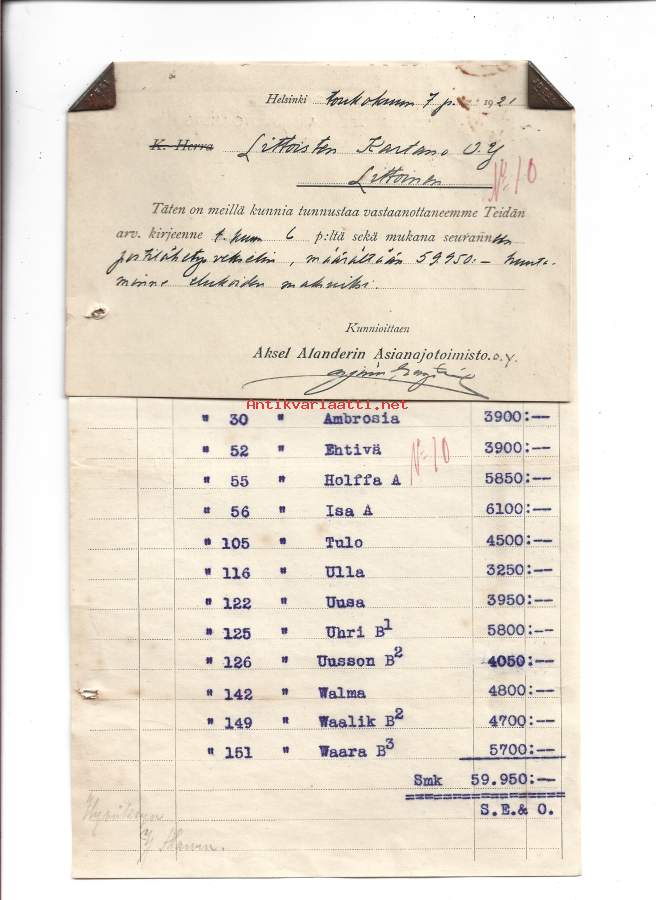 Helsinki toukokuun 7 p. 1921
K. Herra Littoisten Kartano O.Y
Littoinen
No 10
Täten on meillä kunnia tunnustaa vastaanottaneemme Teidän
arv. kirjeenne t. kuun 6 p:ltä sekä mukana seurannen
postilähetysvekselin, määrältään 59.950:-
elukoiden maksuksi.
Kunnioittaen
Aksel Alanderin Asianajotoimisto.o.y.
Antikvariaatti.net
" 30 " Ambrosia 3900:--
" 52 " Ehtivä 3900:--
No 10
" 55 " Holffa A 5850:--
" 56 " Isa A 6100:--
" 105 " Tulo 4500:--
" 116 " Ulla 3250:--
" 122 " Uusa 3950:--
" 125 " Uhri B1 5800:--
" 126 " Uusson B2 4050:--
" 142 " Walma 4800:--
" 149 " Waalik B2 4700:--
" 151 " Waara B3 5700:--
Smk 59.950:--
S.E.& O.